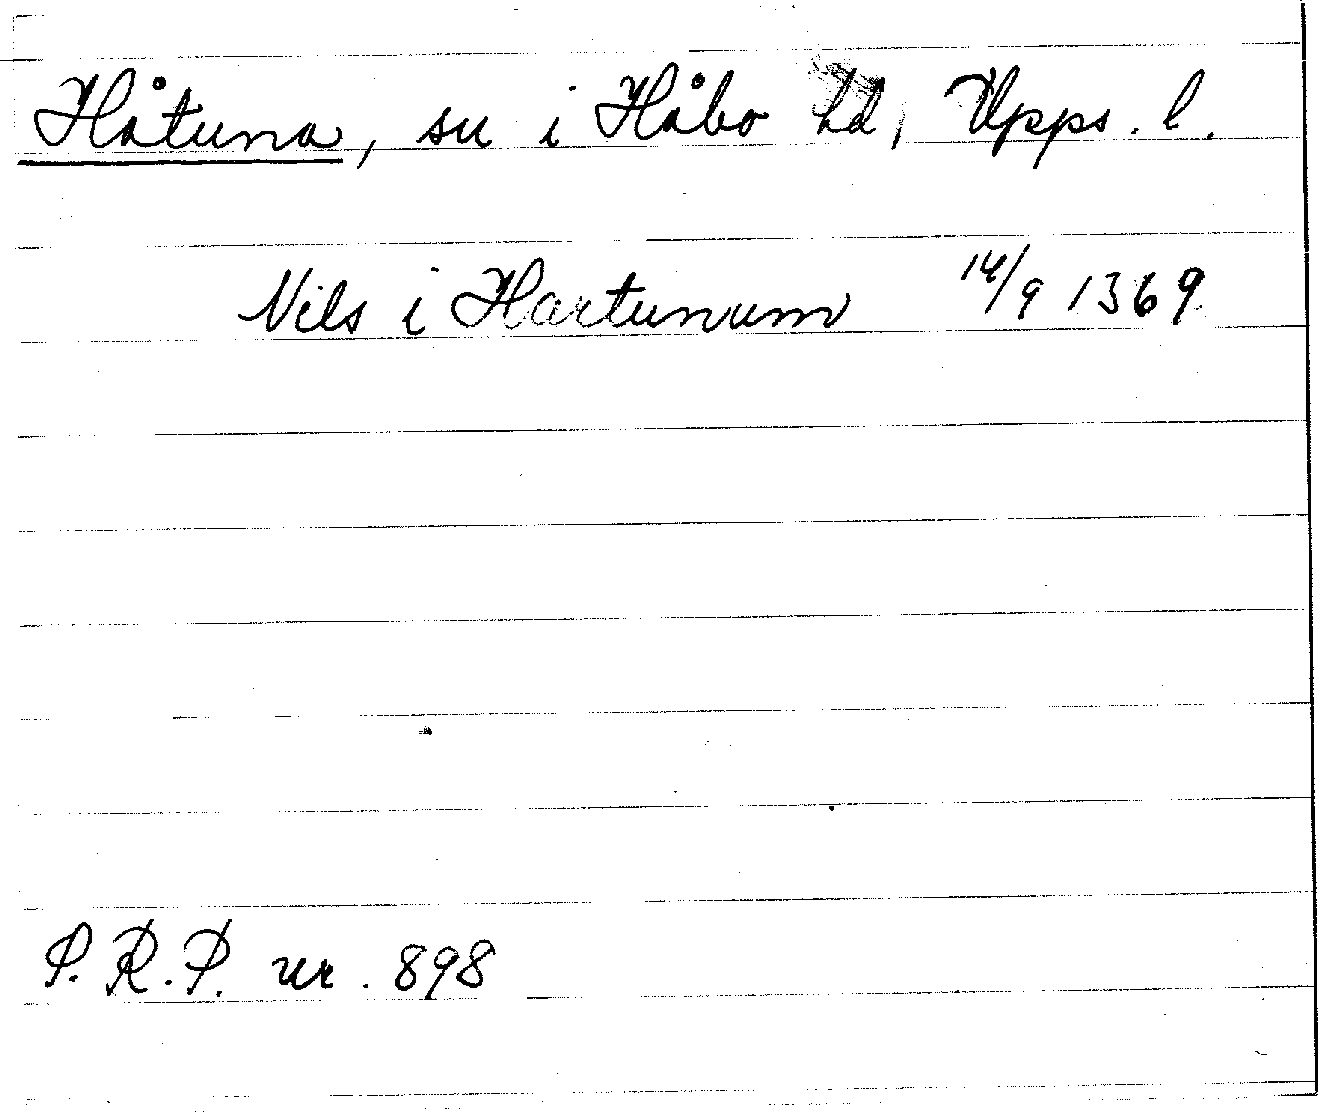 Håtuna, sn i Håbo hd, Upps. l.
Nils i Hartunum 14/9 1369
S.R.P. nr. 898